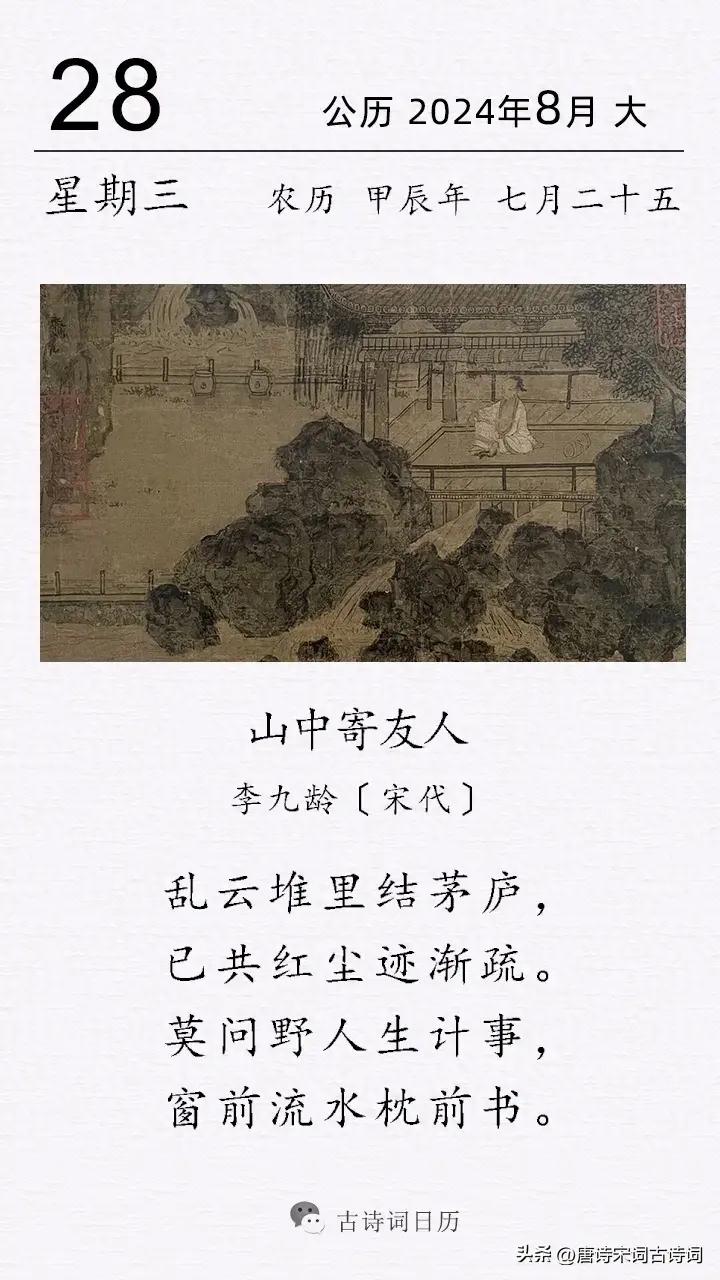 28
公历 2024年8月 大
星期三 农历 甲辰年 七月二十五
山中寄友人
李九龄〔宋代〕
乱云堆里结茅庐，
已共红尘迹渐疏。
莫问野人生计事，
窗前流水枕前书。
古诗词日历
头条 @唐诗宋词古诗词